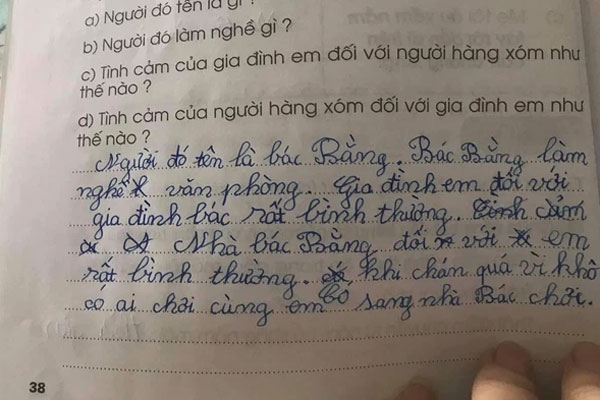 a) Người đó tên là gì ?
b) Người đó làm nghề gì ?
c) Tình cảm của gia đình em đối với người hàng xóm như
thế nào ?
d) Tình cảm của người hàng xóm đối với gia đình em như
thế nào ?
Người đó tên là bác Bằng. Bác Bằng làm
nghề văn phòng. Gia đình em đối với
gia đình bác rất bình thường. Tình cảm
Nhà bác Bằng đối với em
rất bình thường. khi chán quá vì khô
có ai chơi cùng em bỏ sang nhà Bác chơi.
38